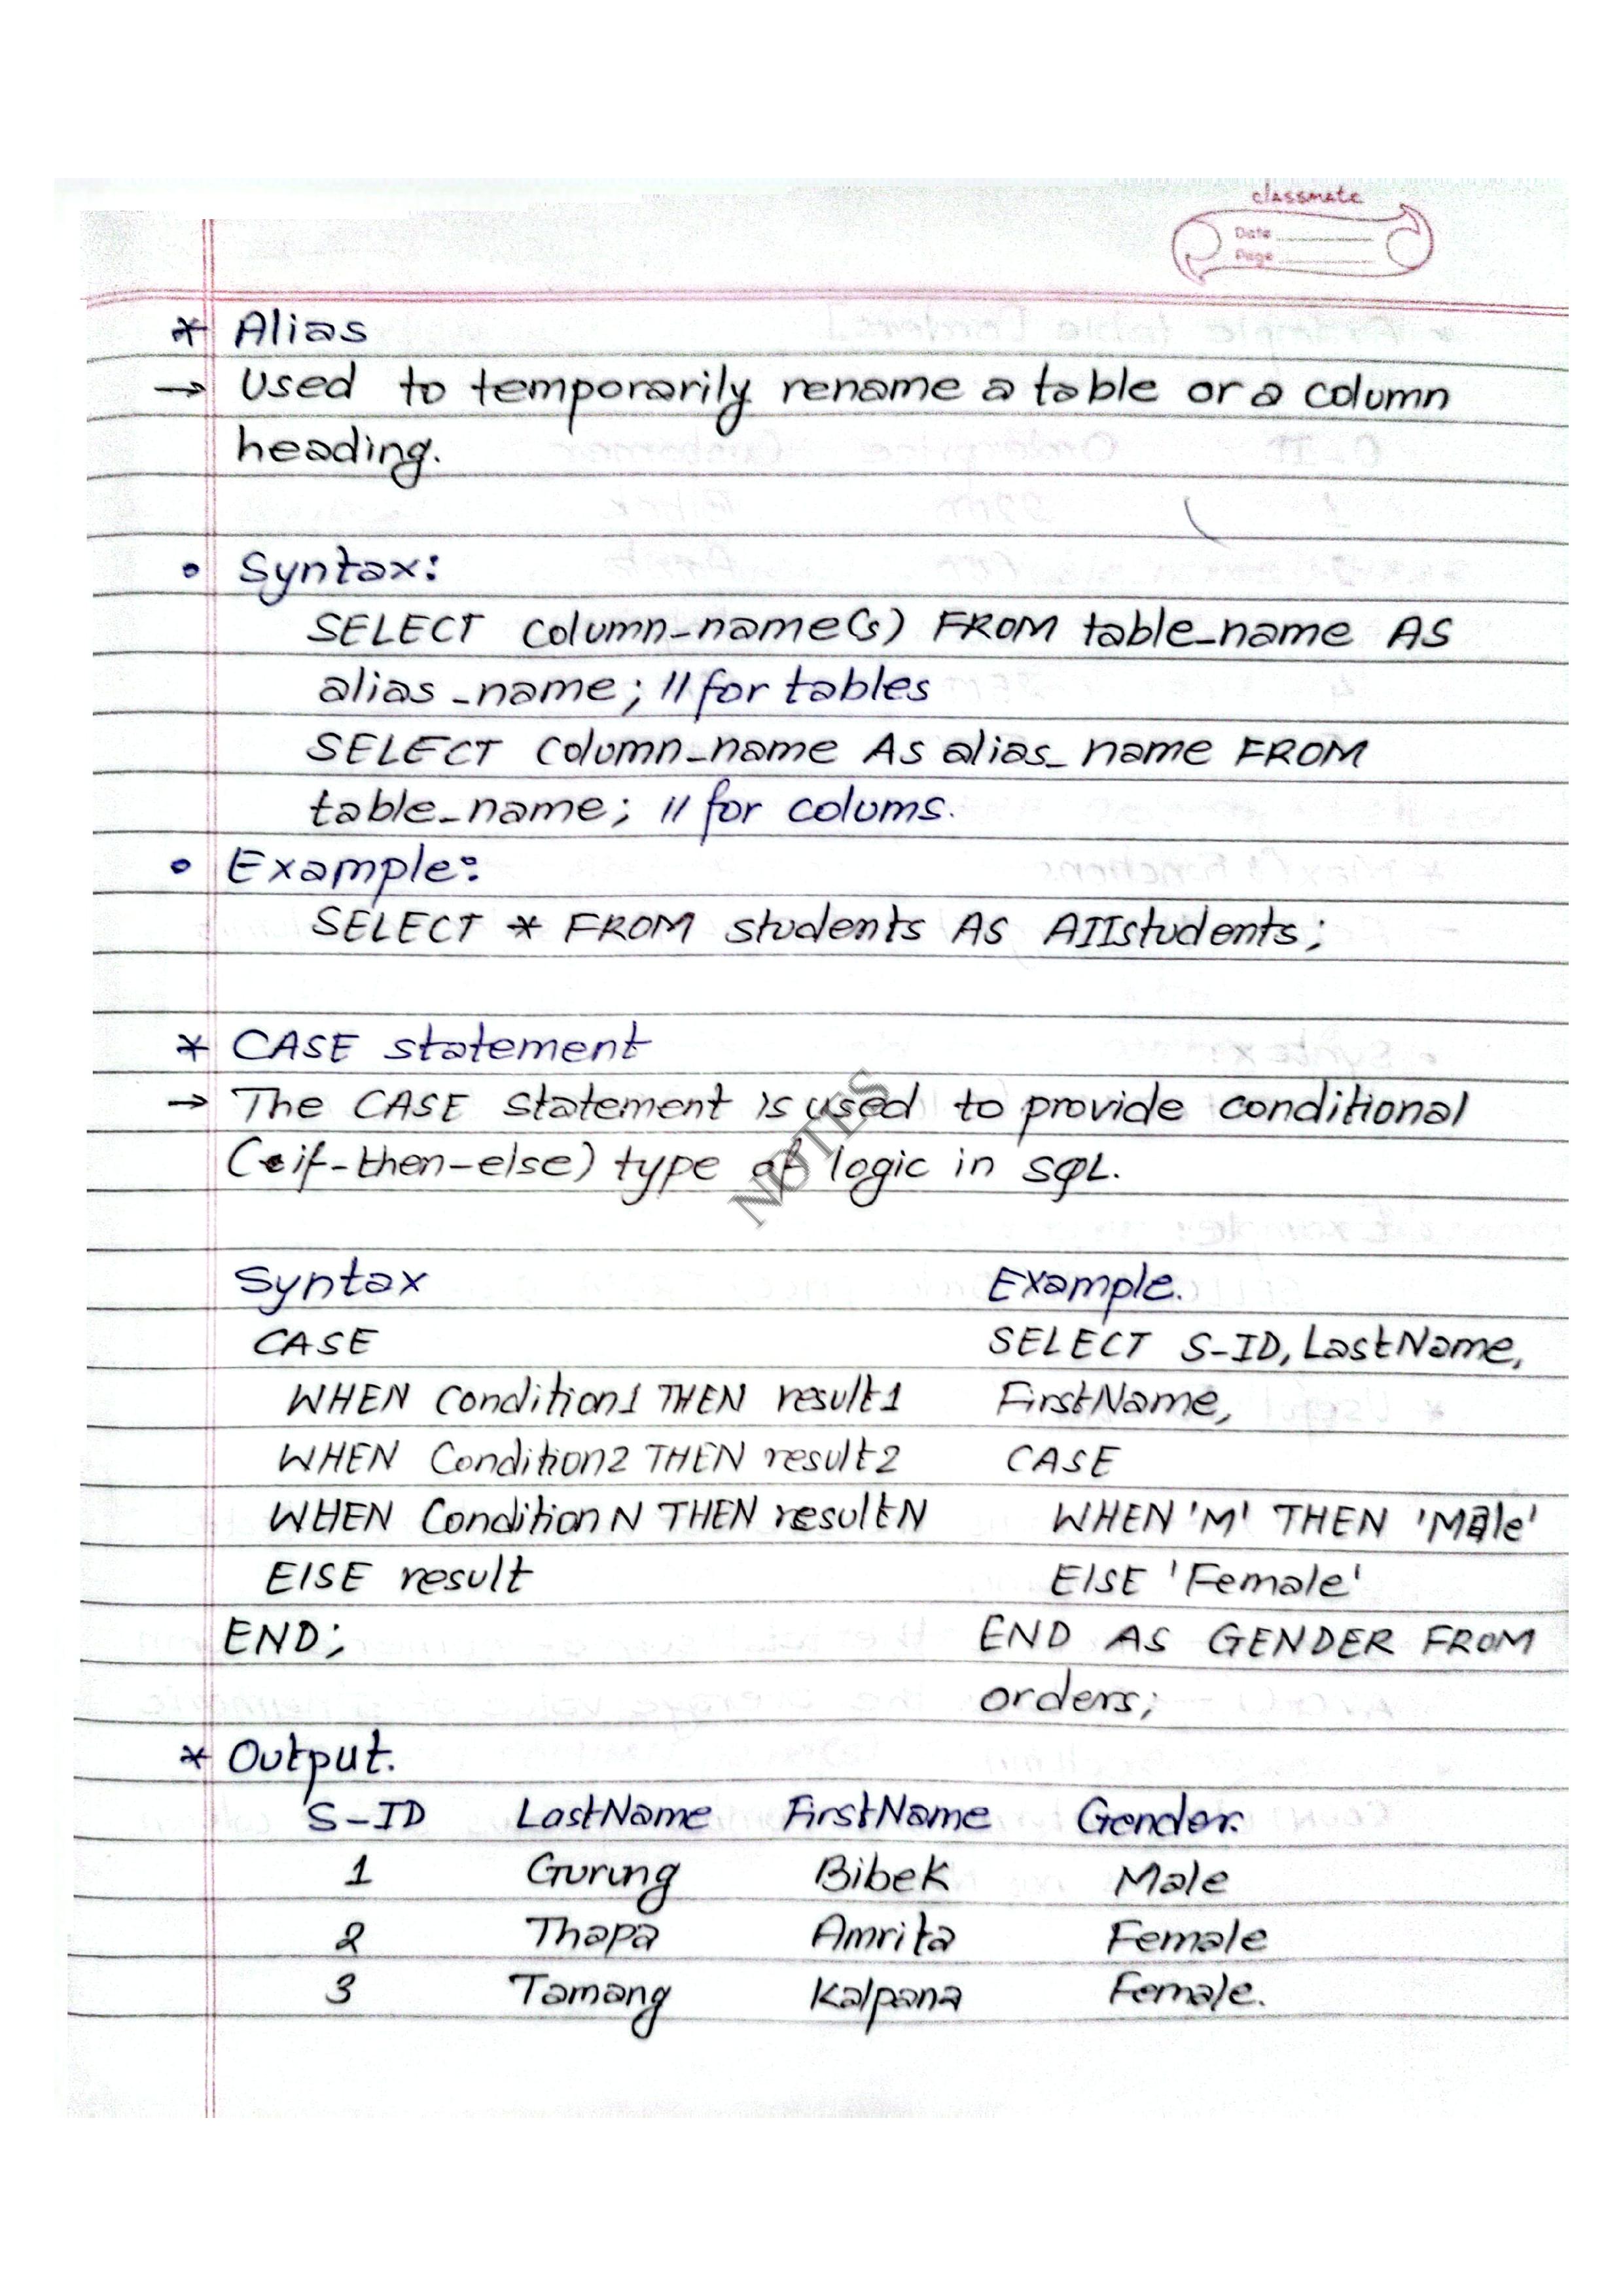 classmate
Date
Page
* Alias
→ Used to temporarily rename a table or a column
heading.
• Syntax:
SELECT column_name(s) FROM table_name AS
alias_name; // for tables
SELECT column_name As alias_name FROM
table_name; // for colums.
• Example:
SELECT * FROM students AS AIIstudents;
* CASE statement
→ The CASE statement is used to provide conditional
(if-then-else) type of logic in SQL.
NOTES
Syntax Example.
CASE SELECT S-ID, LastName,
WHEN Condition1 THEN result1 FirstName,
WHEN Condition2 THEN result2 CASE
WHEN Condition N THEN resultN WHEN 'M' THEN 'Male'
ElSE result ElSE 'Female'
END; END AS GENDER FROM
orders;
* Output.
S-ID LastName FirstName Gender.
1 Gurung Bibek Male
2 Thapa Amrita Female
3 Tamang Kalpana Female.